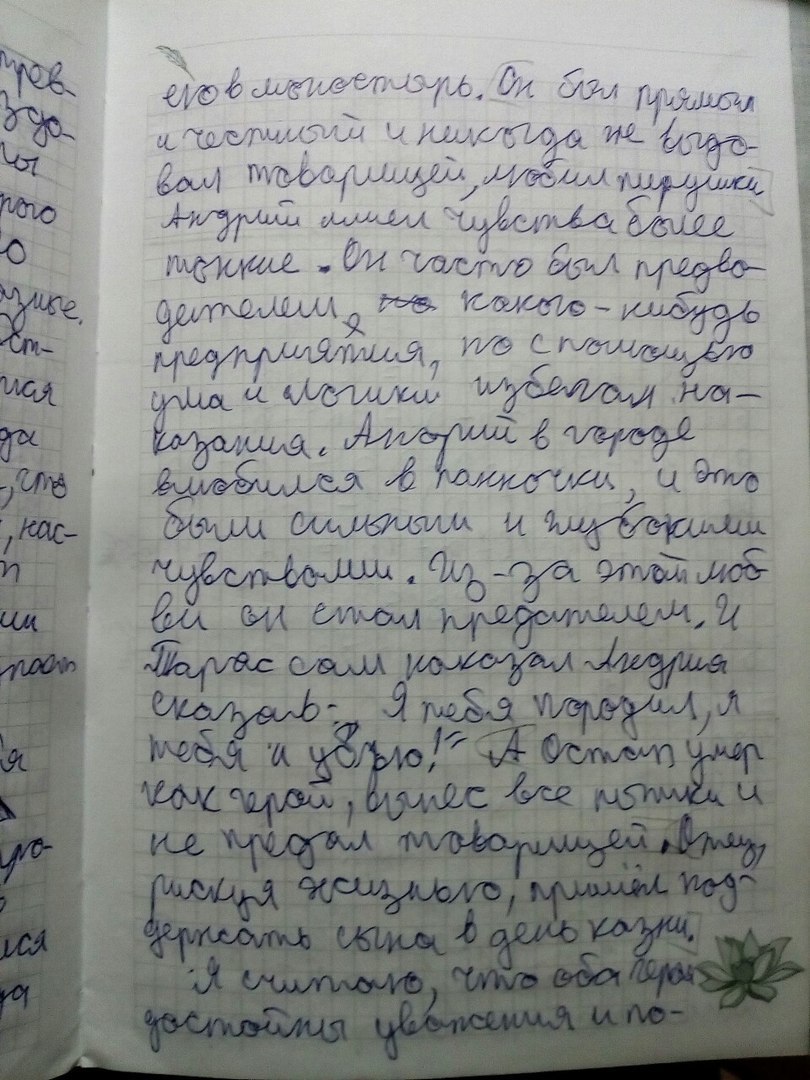 пров-
его в моностарь. Он был прямым
и честный и никогда не выдо-
вал товарищей, любил пирушки
Андрий имел чувства более
тонкие. Он часто был предво-
дителем какого-нибудь
предприятия, но с помощью
ума и логики избегал на-
казания. Андрий в городе
влюбился в панночки, и это
были сильныи и глубокими
чувствами. Из-за этой люб
ви он стал предателем. И
Тарас сам наказал Андрия
сказав: „Я тебя породил, я
тебя и убью!" А Остап умер
как герой, вынес все пытки и
не предал товарищей. Отец,
рискуя жизнью, пришёл под-
держать сына в день казни.
Я считаю, что оба героя
достойны уважения и по-
рого
азные.
ост-
да
, что
, нас-